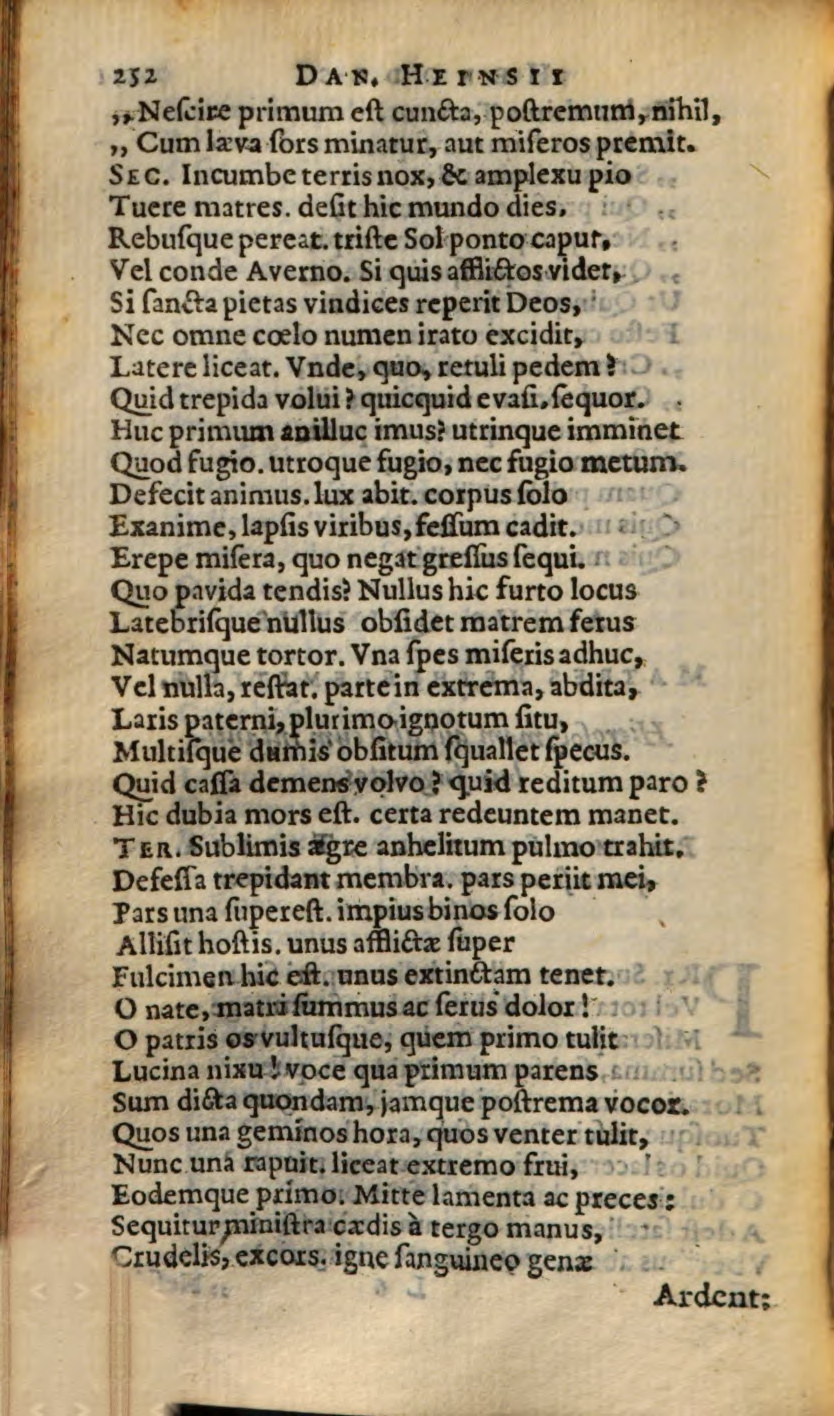 252 DAN. HEINSII
,,Neſcire primum eſt cuncta, poſtremum, nihil,
,, Cum læva ſors minatur, aut miſeros premit.
SEC. Incumbe terris nox, & amplexu pio
Tuere matres. deſit hic mundo dies,
Rebuſque pereat. triſte Sol ponto caput,
Vel conde Averno. Si quis afflictos videt,
Si ſancta pietas vindices reperit Deos,
Nec omne cœlo numen irato excidit,
Latere liceat. Vnde, quo, retuli pedem?
Quid trepida volui? quicquid evaſi, ſequor.
Huc primum an illuc imus? utrinque imminet
Quod fugio. utroque fugio, nec fugio metum.
Defecit animus. lux abit. corpus ſolo
Exanime, lapſis viribus, feſſum cadit.
Erepe miſera, quo negat greſſus ſequi.
Quo pavida tendis? Nullus hic furto locus
Latebriſque nullus obſidet matrem ferus
Natumque tortor. Vna ſpes miſeris adhuc,
Vel nulla, reſtat. parte in extrema, abdita,
Laris paterni, plurimo ignotum ſitu,
Multiſque dumis obſitum ſquallet ſpecus.
Quid caſſa demens volvo? quid reditum paro?
Hic dubia mors eſt. certa redeuntem manet.
TER. Sublimis ægre anhelitum pulmo trahit.
Defeſſa trepidant membra. pars periit mei,
Pars una ſupereſt. impius binos ſolo
Alliſit hoſtis. unus afflictæ ſuper
Fulcimen hic eſt. unus extinctam tenet.
O nate, matri ſummus ac ſerus dolor!
O patris os vultuſque, quem primo tulit
Lucina nixu! voce qua primum parens
Sum dicta quondam, jamque poſtrema vocor.
Quos una geminos hora, quos venter tulit,
Nunc una rapuit. liceat extremo frui,
Eodemque primo. Mitte lamenta ac preces:
Sequitur miniſtra cædis à tergo manus,
Crudelis, excors. igne ſanguineo genæ
Ardent;